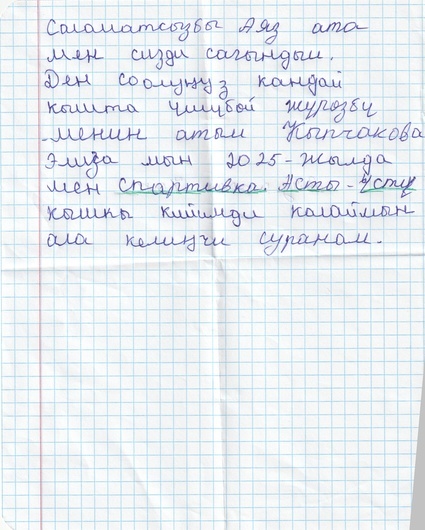 Саламатсызбы Аяз ата
мен сизди сагындым.
Ден соолуңуз кандай
кышта үшүбөй жүрөзбү
менин атым Кыпчакова
Элиза мын 2025-жылда
мен спартивка. Асты-Үстү
кышкы кийимди каалаймын
ала келиңчи суранам.